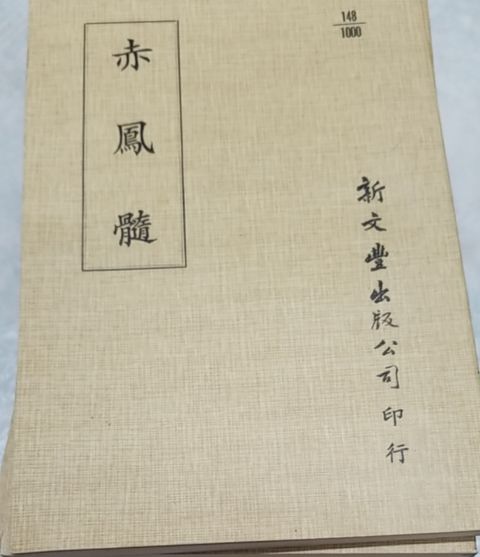 148
1000
赤鳳髓
新文豐出版公司印行